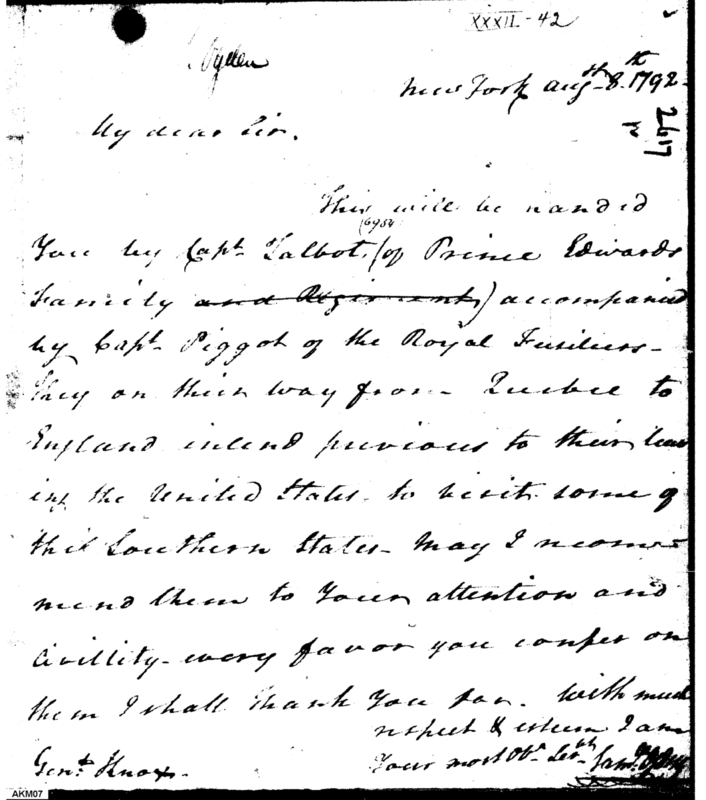 XXXII-42
Ogden
New York augst 8th 1792
2617
My dear Sir.
This will be handed
6954
You by Capt. Talbot, (of Prince Edwards
Family and Regiment,) accompanied
by Capt. Piggot of the Royal Fusiliers-
they on their way from - Quebec to
England intend previous to their leav
ing the United States - to visit some of
the Southern States - May I recom-
mend them to Your attention and
Civillity - every favor you confer on
them I shall thank You for. With much
respect & esteem I am
Your most Obt. Servt. Saml. Ogden
Genl. Knox -
AKM07